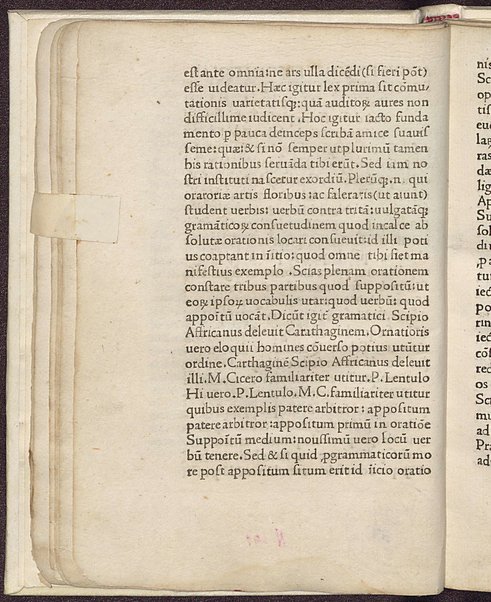 est ante omnia: ne ars ulla dicẽdi (si fieri põt)
esse uideatur. Hæc igitur lex prima sit cõmu
tationis uarietatisq;: quã auditoꝝ aures non
difficillime iudicent. Hoc igitur iacto funda
mento ꝓ pauca deinceps scribã amice suauis
seme: quæ: & si nõ semper ut plurimũ tamen
his rationibus seruãda tibi erũt. Sed iam no
stri instituti nascetur exordiũ. Pleriq;. n. qui
oratoriæ artis floribus: ac faleratis (ut aiunt)
student uerbis: uerbũ contra tritã: uulgatãq;
gramãticoꝝ consuetudinem quod in calce ab
solutæ orationis locari consueuit: id illi poti
us coaptant in ĩitio: quod omne tibi fiet ma
nifestius exemplo. Scias plenam orationem
constare tribus partibus quod suppositũ: ut
eoꝝ ipsoꝝ uocabulis utar: quod uerbũ: quod
appoitũ uocãt. Dicũt igit᷑ gramatici. Scipio
Affricanus deleuit Carathaginem. Ornatioris
uero eloquii homines cõuerso potius utũtur
ordine. Carthaginẽ Scipio Affricanus deleuit
illi. M. Cicero familiariter utitur. P. Lentulo
Hi uero. P. Lentulo. M. C. familiariter utitur
quibus exemplis patere arbitror: appositum
patere arbitror: appositum primũ in oratiõe
Suppoitũ medium: nouissimũ uero locũ uer
bũ tenere. Sed & si quid ꝓ grammaticorũ mo
re post appositum situm erit id ĩicio oratio